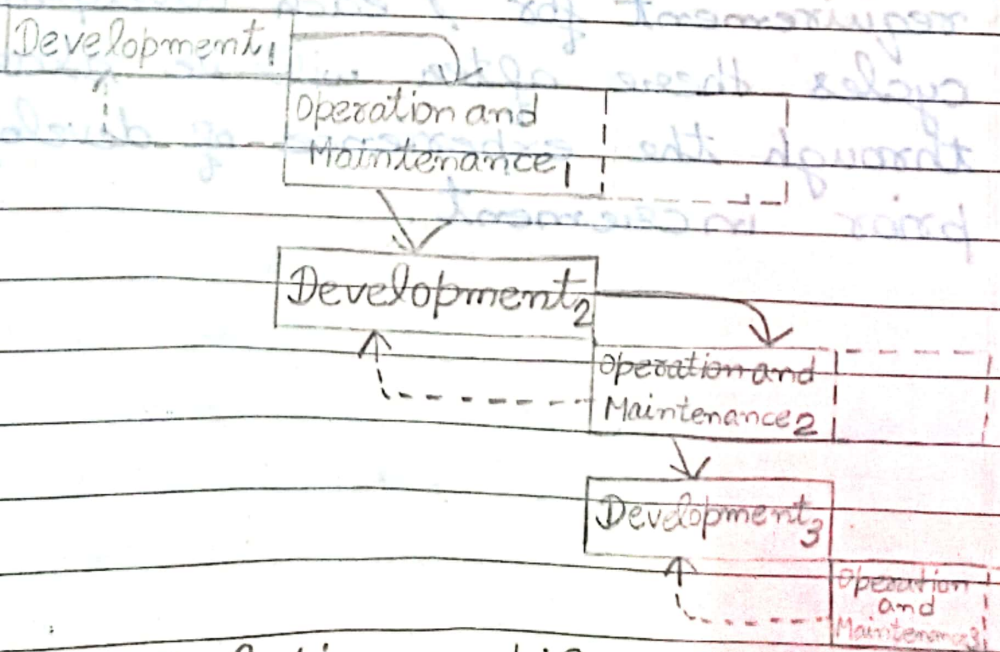 Development1
Operation and
Maintenance1
Development2
Operation and
Maintenance2
Development3
Operation
and
Maintenance3